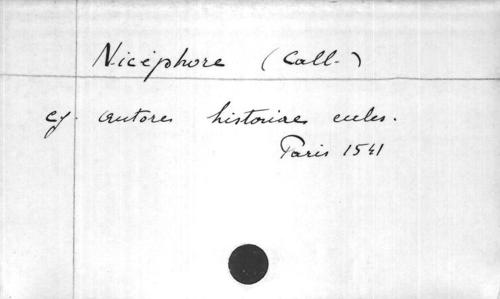 Nicéphore (Call.)
cf. autores historiae eccles.
Paris 1541